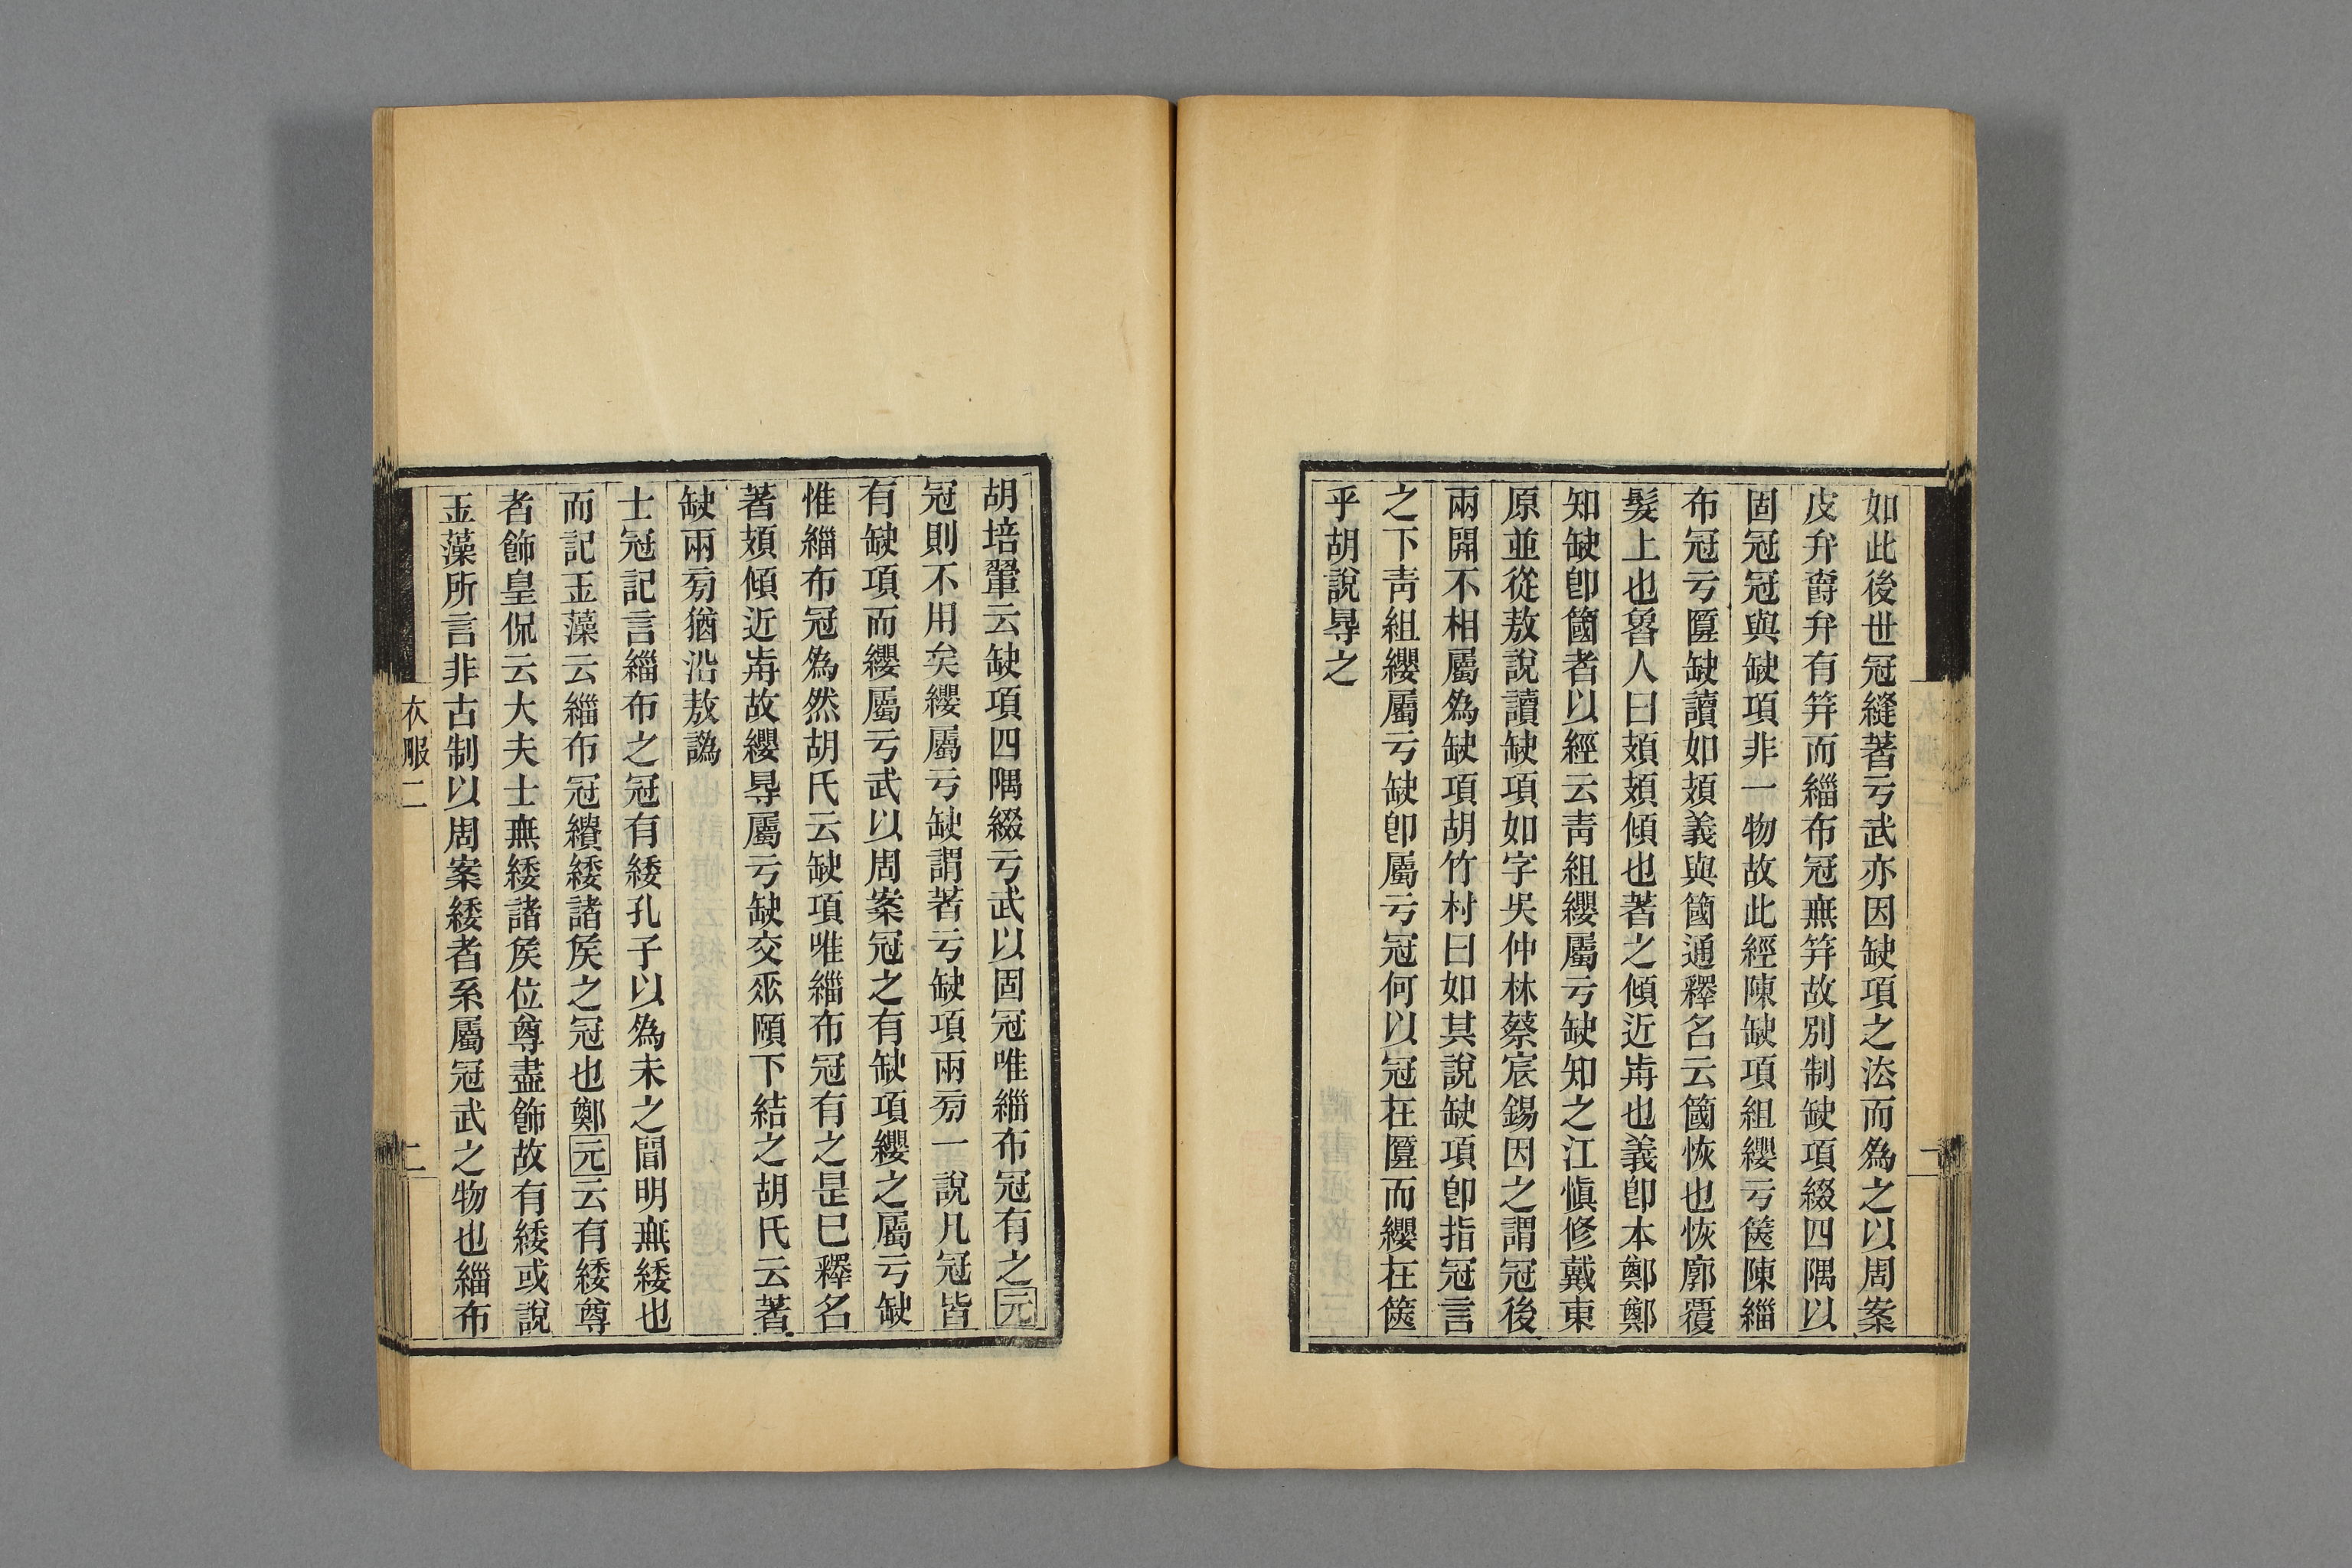 如此後世冠縫著亏武亦因缺項之泫而為之以周案
皮弁爵弁有笄而緇布冠無笄故別制缺項綴四隅以
固冠冠與缺項非一物故此經陳缺項組纓亏篋陳緇
布冠亏匴缺讀如頍義與簂通釋名云簂恢也恢廓覆
髮上也魯人曰頍頍傾也著之傾近歬也義卽本鄭鄭
知缺卽簂者以經云靑組纓屬亏缺知之江愼修戴東
原並從敖說讀缺項如字吳仲林蔡宸錫因之謂冠後
兩開不相屬為缺項胡竹村曰如其說缺項卽指冠言
之下靑組纓屬亏缺卽屬亏冠何以冠在匴而纓在篋
乎胡說㝵之
胡培翬云缺項四隅綴亏武以固冠唯緇布冠有之元
冠則不用矣纓屬亏缺謂著亏缺項兩㫄一說凡冠皆
有缺項而纓屬亏武以周案冠之有缺項纓之屬亏缺
惟緇布冠為然胡氏云缺項唯緇布冠有之是巳釋名
著頍傾近歬故纓㝵屬亏缺交𠂹頤下結之胡氏云著
缺兩㫄猶沿敖譌
士冠記言緇布之冠有緌孔子以為未之聞明無緌也
而記玉藻云緇布冠繢緌諸侯之冠也鄭元云有緌尊
者飾皇侃云大夫士無緌諸侯位尊盡飾故有緌或說
玉藻所言非古制以周案緌者系屬冠武之物也緇布
衣服二
二